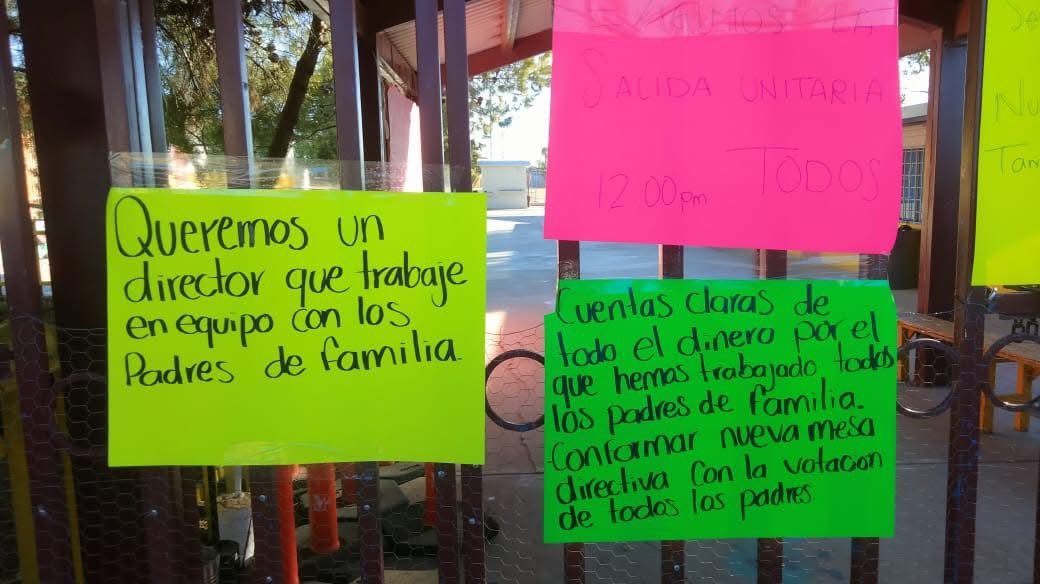 Queremos un
director que trabaje
en equipo con los
Padres de familia.
LA
SALIDA UNITARIA
TODOS
12:00pm
Cuentas claras de
todo el dinero por el
que hemos trabajado todos
los padres de familia.
-Conformar nueva mesa
directiva con la votacion
de todos los padres
Se
Nu
Tam